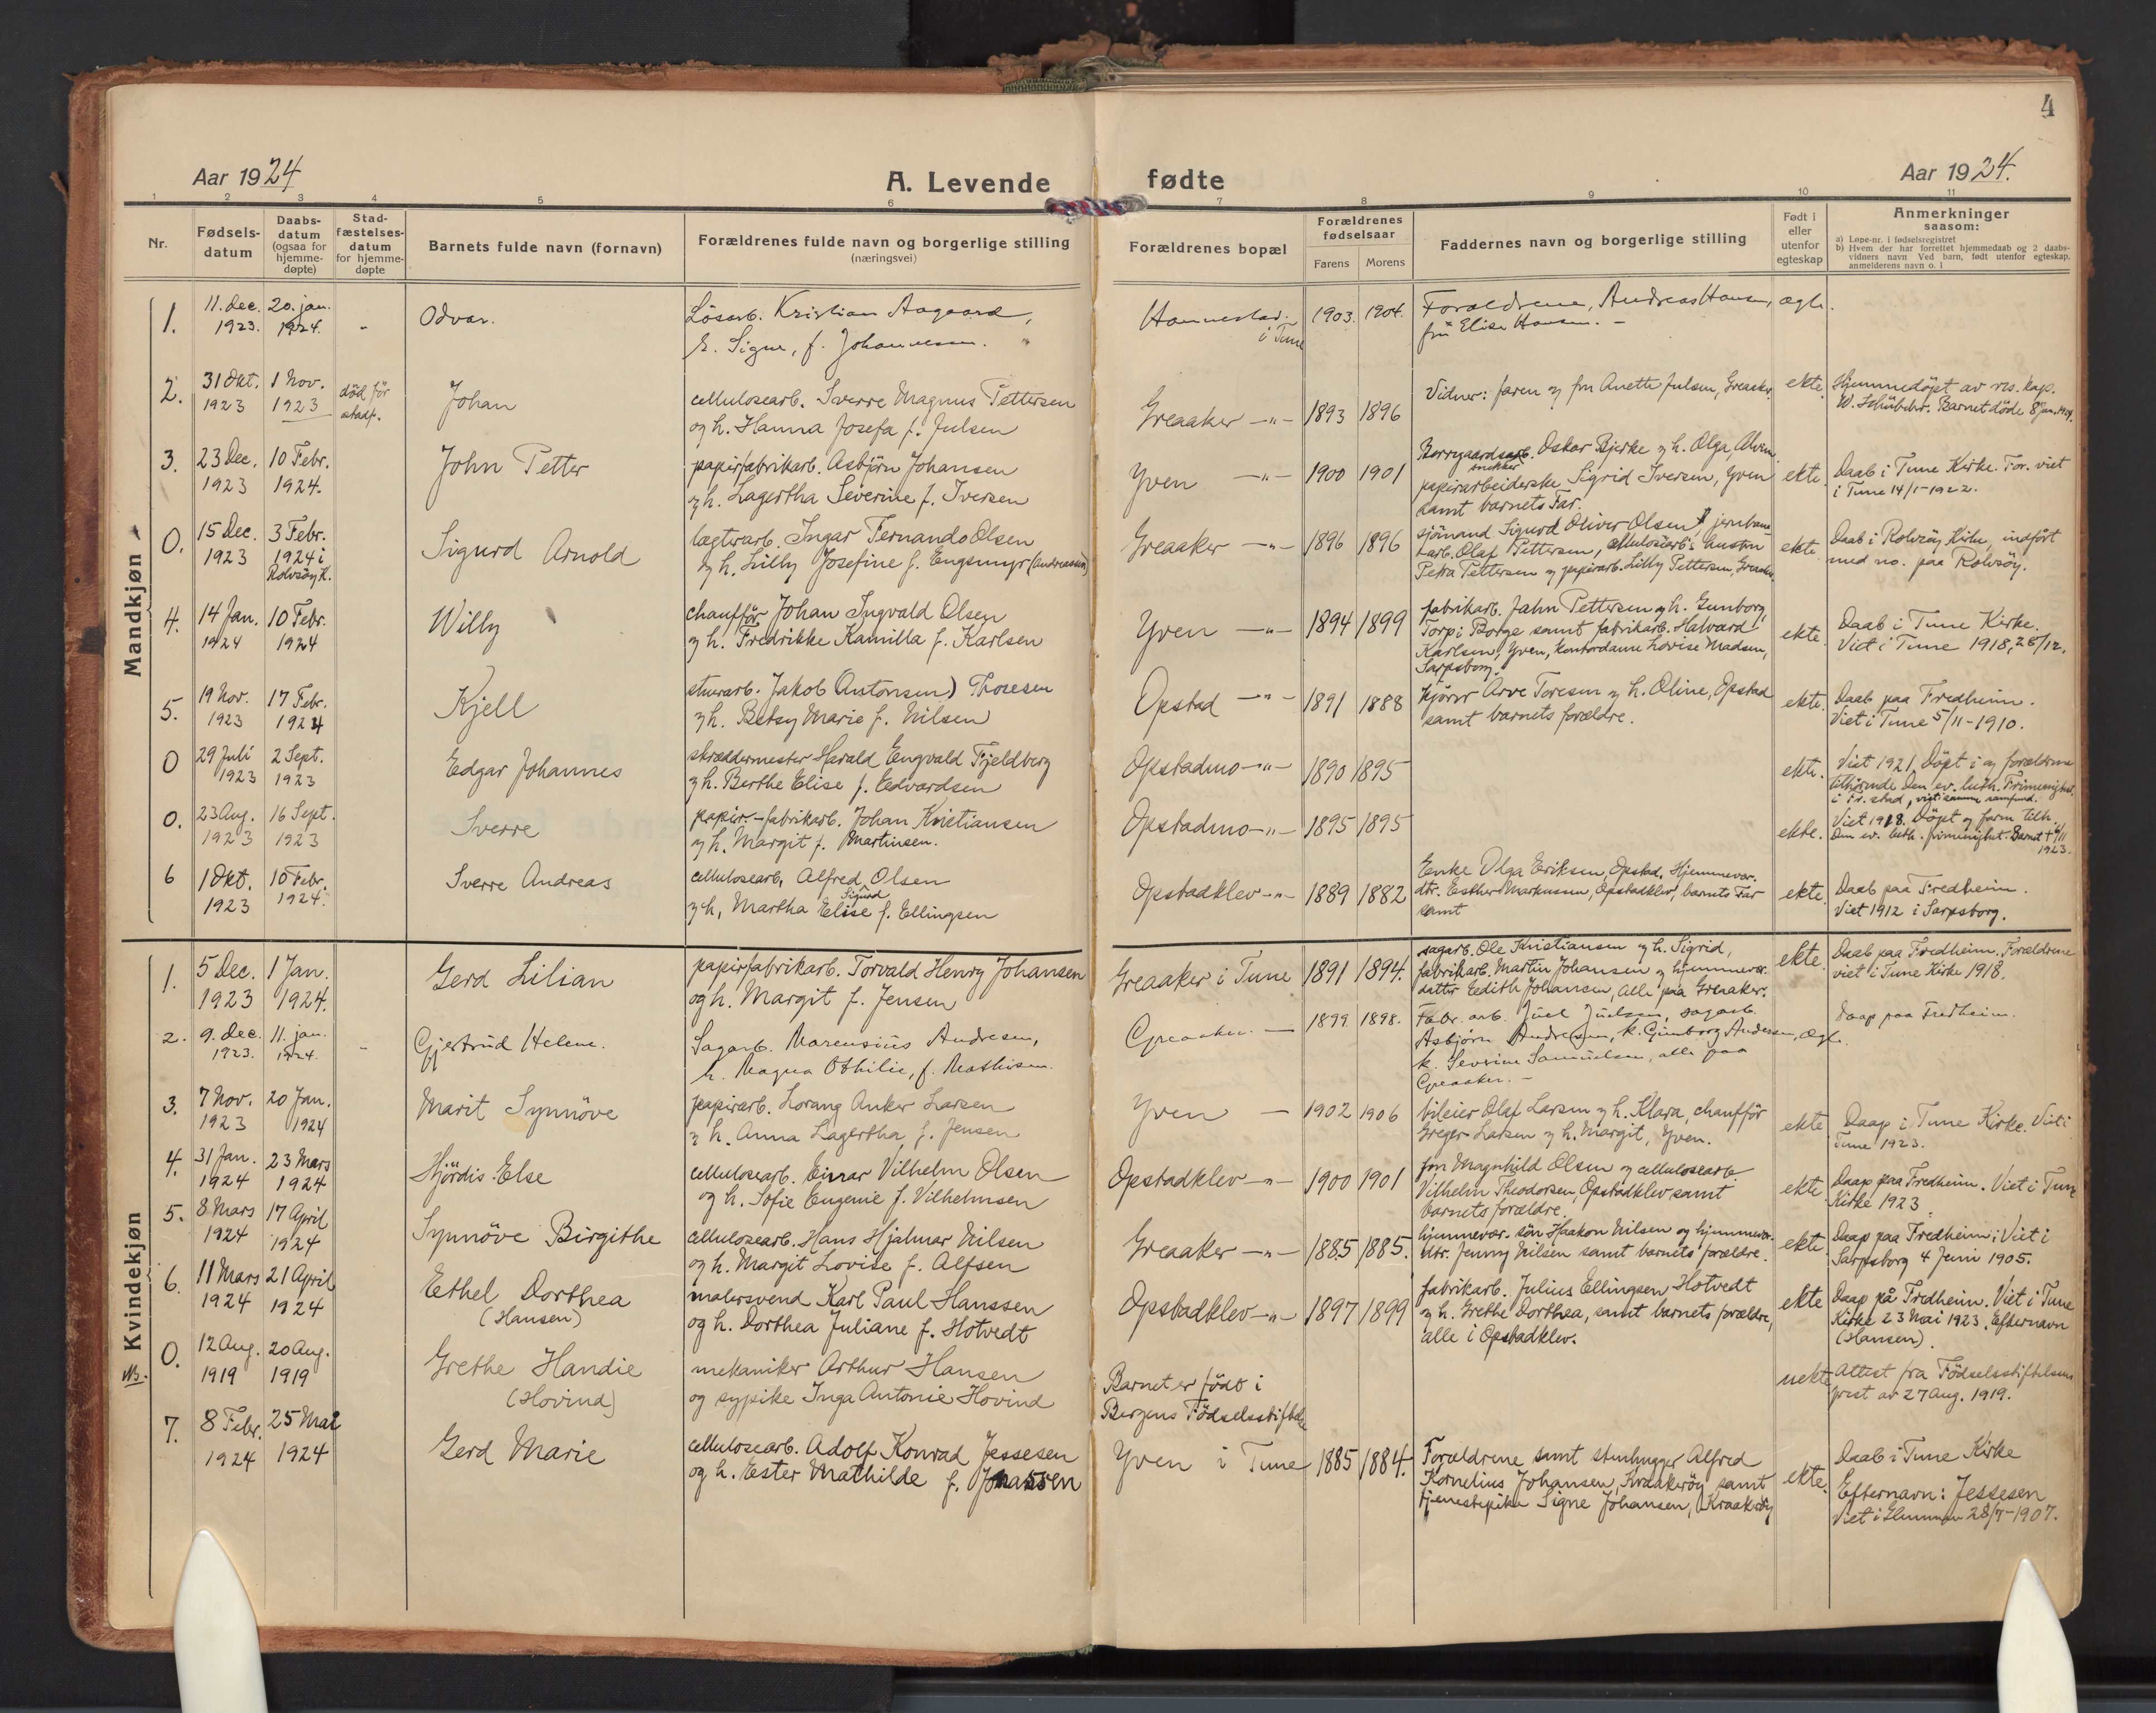 4
Aar 1924
A. Levende fødte
Aar 1924.
1 2 3 4 5 6 7 8 9 10 11
Nr.
Fødsels-
datum
Daabs-
datum
(ogsaa for
hjemme-
døpte)
Stad-
fæstelses-
datum
for hjemme-
døpte
Barnets fulde navn (fornavn)
Forældrenes fulde navn og borgerlige stilling
(næringsvei)
Forældrenes bopæl
Forældrenes
fødselsaar
Farens Morens
Faddernes navn og borgerlige stilling
Født i
eller
utenfor
egteskap
Anmerkninger
saasom:
a) Løpe-nr. i fødselsregistret
b) Hvem der har forrettet hjemmedaab og 2 daabs-
vidners navn Ved barn, født utenfor egteskap,
anmelderens navn o. l
Mandkjøn
1.
11. dec.
1923.
20. jan.
1924.
Odvar.
Løsarb. Kristian Aagaard,
h. Signe, f. Johannessen.
Hannestad.
i Tune
1903. 1904.
Forældrene, Andreas Hansen,
fru Elise Hansen. -
ægte.
2.
31 Okt.
1923
1 Nov.
1923
död för
stadf.
Johan
cellulosearb. Sverre Magnus Pettersen
og h. Hanna Josefa f. Julsen
Greaaker -"-
1893 1896
Vidner: faren og fru Anette Julsen, Greaaker.
ekte.
Hjemmedöpt av res. kap.
W. Schübeler. Barnet döde 8 jan. 1924.
3.
23 Dec.
1923
10 Febr.
1924.
John Petter
papirfabrikarb. Asbjörn Johansen
og h. Lagertha Severine f. Iversen
Yven -"-
1900 1901
Borregaardsarb. Oskar Bjerke og h. Olga, Alvim
snekker
papirarbeiderske Sigrid Iversen, Yven
samt barnets Far.
ekte.
Daab i Tune Kirke. For. viet
i Tune 14/1-1922.
0.
15 Dec.
1923
3 Febr.
1924 i
Rolvsöy K.
Sigurd Arnold
lægterarb. Ingar Fernando Olsen
og h. Lilly Josefine f. Engsmyr (Andreassen)
Greaaker -"-
1896 1896
sjömand Sigurd Oliver Olsen, jernbane-
arb. Olaf Pettersen, cellulosearb's hustru
Petra Pettersen og papirarb. Lilly Pettersen, Greaaker.
ekte.
Daab i Rolvsöy Kirke, indfört
med no. paa Rolvsöy.
4.
14 Jan.
1924
10 Febr.
1924
Willy
chaufför Johan Ingvald Olsen
og h. Fredrikke Kamilla f. Karlsen
Yven -"-
1894 1899
fabrikarb. Jahn Pettersen og h. Gunborg,
Torp i Borge samt fabrikarb. Halvard
Karlsen, Yven, kontordame Lovise Madsen,
Sarpsborg.
ekte.
Daab i Tune Kirke.
Viet i Tune 1918, 28/12.
5.
19 Nov.
1923
17 Febr.
1924
Kjell
stuerarb. Jakob Antonsen) Thoresen
og h. Betsy Marie f. Nilsen
Opstad -"-
1891 1888
kjörer Arve Toresen og h. Oline, Opstad
samt barnets forældre.
ekte.
Daab paa Fredheim.
Viet i Tune 5/11-1910.
0
29 Juli
1923
2 Sept.
1923
Edgar Johannes
skræddermester Harald Engvald Fjeldberg
og h. Berthe Elise f. Edvardsen
Opstadmo -"-
1890 1895
ekte.
Viet 1921, Döpt i og forældrene
tilhörende Den ev. luth. Frimenighet
i Fr. stad, viet i samme samfund.
0.
23 Aug.
1923
16 Sept.
1923
Sverre
papir-fabrikarb. Johan Kristiansen
og h. Margit f. Martinsen.
Opstadmo -"-
1895 1895
ekte.
Viet 1918. Döpt og farm tilh.
Den ev. luth. frimenighet. Barnet † 6/11
1923.
6
1 Okt.
1923
10 Febr.
1924.
Sverre Andreas
cellulosearb. Alfred Olsen
Sigurd
og h. Martha Elise f. Ellingsen
Opstadklev -"-
1889 1882
Enke Olga Eriksen, Opstad. Hjemmevær.
dtr. Esther Markussen, Opstadklev, barnets Far
samt
ekte.
Daab paa Fredheim.
Viet 1912 i Sarpsborg.
Kvindekjøn
1.
5 Dec.
1923
1 Jan.
1924.
Gerd Lilian
papirfabrikarb. Torvald Henry Johansen
og h. Margit f. Jensen
Greaaker i Tune
1891 1894.
sagarb. Ole Kristiansen og h. Sigrid,
fabrikarb. Martin Johansen og hjemmevær.
datter Edith Johansen, alle paa Greaaker.
ekte.
Daab paa Fredheim. Forældrene
viet i Tune Kirke 1918.
2.
9. dec.
1923.
11. jan.
1924.
Gjertrud Helene.
Sagarb. Marensius Andresen,
h. Magna Othilie, f. Mathisen.
Greaaker. -
1899 1898.
Fabr. arb. Juel Juelsen, sagarb.
Asbjørn Andresen, k. Gunborg Andersen,
k. Severine Samuelsen, alle paa
Greaaker. -
ægte.
Daap paa Fredheim.
3.
7 Nov.
1923
20 Jan.
1924
Marit Synnöve
papirarb. Lorang Anker Larsen
og h. Anna Lagertha, f. Jensen
Yven -
1902 1906
bileier Olaf Larsen og h. Klara, chaufför
Greger Larsen og h. Margit, Yven.
ekte
Daap i Tune Kirke. Viet i
Tune 1923.
4.
31 Jan.
1924
23 Mars
1924
Hjördis Else
cellulosearb. Einar Vilhelm Olsen
og h. Sofie Eugenie f. Vilhelmsen
Opstadklev -"-
1900 1901
fru Magnhild Olsen og cellulosearb.
Vilhelm Theodorsen, Opstadklev samt
barnets forældre.
ekte.
Daap paa Fredheim. Viet i Tune
Kirke 1923.
5.
8 Mars
1924
17 April
1924
Synnöve Birgithe
cellulosearb. Hans Hjalmar Nilsen
og h. Margit Lovise f. Alfsen
Greaaker -"-
1885 1885.
hjemmevær. sön Haakon Nilsen og hjemmevær.
dtr. Jenny Nilsen samt barnets forældre.
ekte.
Daap paa Fredheim; Viet i
Sarpsborg 4 Juni 1905.
6.
11 Mars
1924
21 April
1924
Ethel Dorthea
(Hansen)
malersvend Karl Paul Hanssen
og h. Dorthea Juliane f. Hotvedt
Opstadklev -"-
1897 1899
fabrikarb. Julius Ellingsen Hotvedt
og h. Grethe Dorthea, samt barnets forældre,
alle i Opstadklev.
ekte
Daap på Fredheim. Viet i Tune
Kirke 23 Mai 1923. Efternavn
(Hansen).
Nb.
0.
12 Aug.
1919
20 Aug.
1919
Grethe Handie
(Hovind)
mekaniker Arthur Hansen
og sypike Inga Antonie Hovind
Barnet er födt i
Bergens Födselsstiftelse
uekte
Attest fra Födselsstiftelsens
prest av 27 Aug. 1919.
7.
8 Febr.
1924
25 Mai
1924
Gerd Marie
cellulosearb. Adolf Konrad Jessesen
og h. Ester Mathilde f. Johansen
Yven i Tune
1885 1884.
Forældrene samt stenhugger Alfred
Kornelius Johansen, Kraakeröy samt
tjenestepike Signe Johansen, Kraakeröy
ekte.
Daab i Tune Kirke
Efternavn: Jessesen
Viet i Glemmen 28/7-1907.